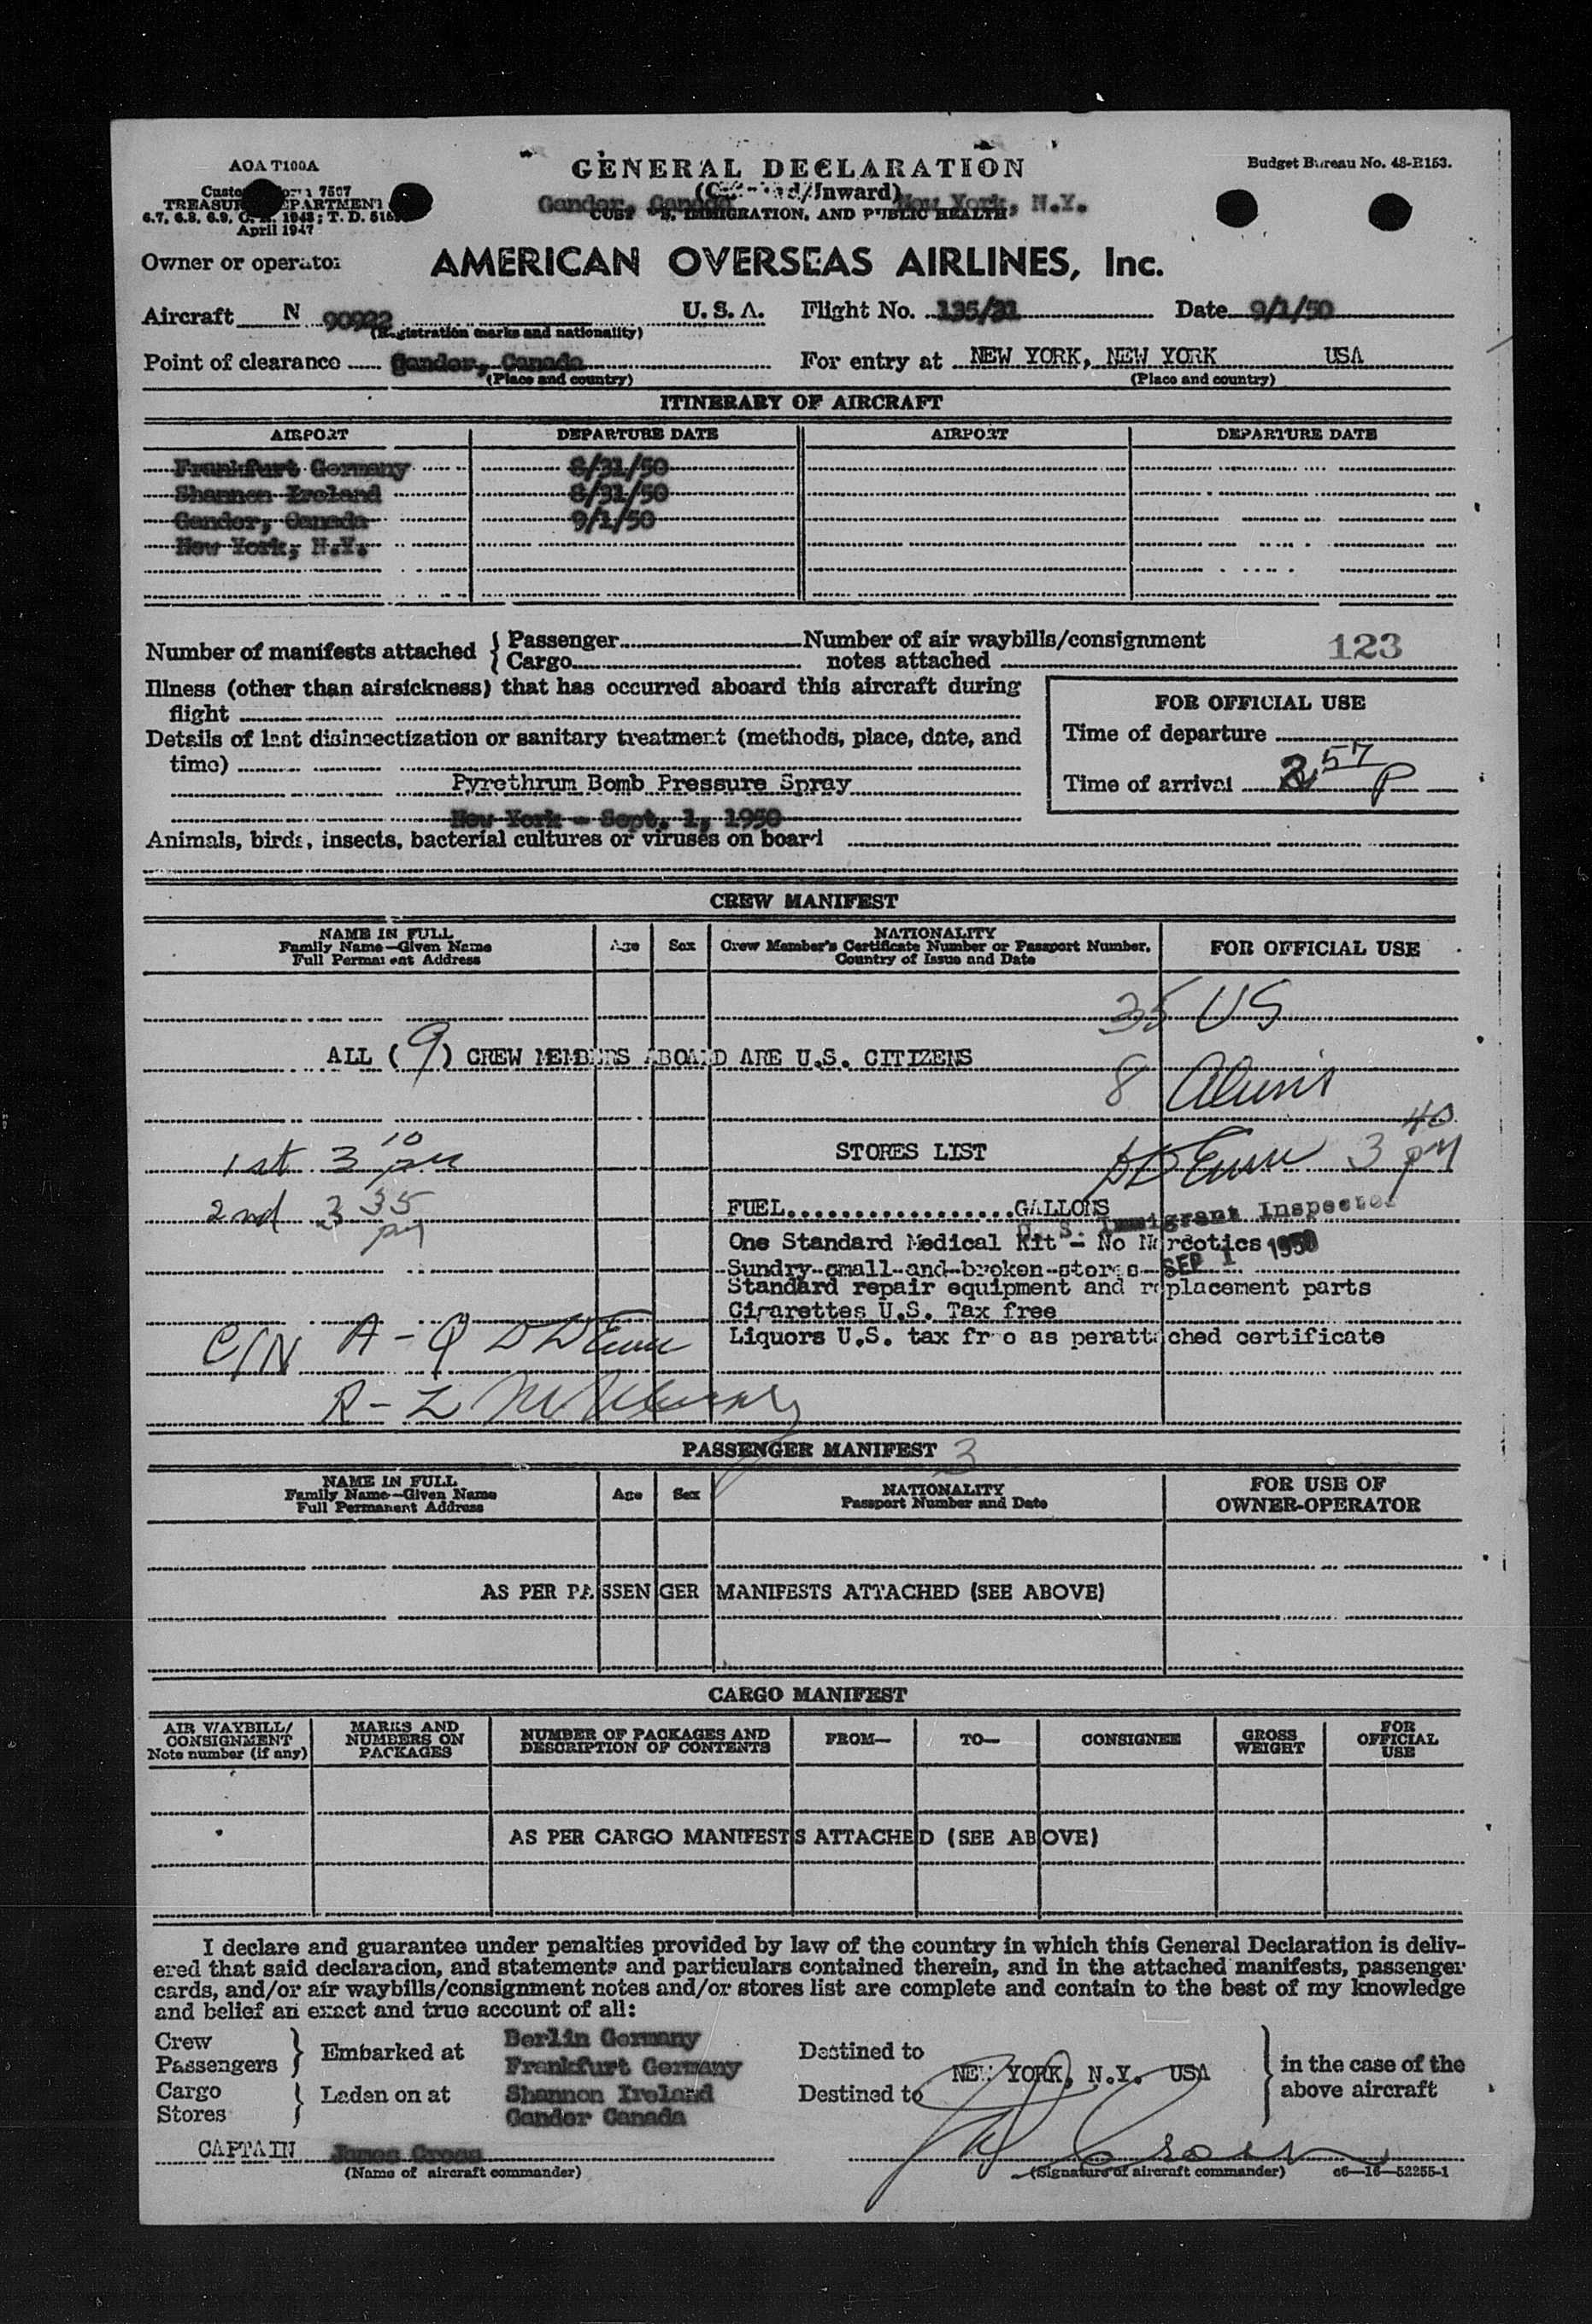 AOA T100A
GENERAL DECLARATION
Budget Bureau No. 48-R153.
Customs Form 7507
(Outward/Inward)
TREASURY DEPARTMENT
Gander, Canada New York, N.Y.
6.7, 6.8, 6.9, C. R. 1943; T. D.
CUSTOMS, IMMIGRATION, AND PUBLIC HEALTH
April 1947
Owner or operator
AMERICAN OVERSEAS AIRLINES, Inc.
Aircraft N 90922 U.S.A. Flight No. 135/31 Date 9/1/50
(Registration marks and nationality)
Point of clearance Gander, Canada For entry at NEW YORK, NEW YORK USA
(Place and country) (Place and country)
ITINERARY OF AIRCRAFT
AIRPORT DEPARTURE DATE AIRPORT DEPARTURE DATE
Frankfurt Germany 8/31/50
Shannon Ireland 8/31/50
Gander, Canada 9/1/50
New York, N.Y.
Number of manifests attached { Passenger Number of air waybills/consignment
{ Cargo notes attached
123
Illness (other than airsickness) that has occurred aboard this aircraft during
flight
Details of last disinsectization or sanitary treatment (methods, place, date, and
time)
Pyrethrum Bomb Pressure Spray
New York - Sept. 1, 1950
FOR OFFICIAL USE
Time of departure
Time of arrival 2 57 P
Animals, birds, insects, bacterial cultures or viruses on board
CREW MANIFEST
NAME IN FULL
Family Name—Given Name
Full Permanent Address
Age Sex
NATIONALITY
Crew Member's Certificate Number or Passport Number,
Country of Issue and Date
FOR OFFICIAL USE
35 US
ALL (9) CREW MEMBERS ABOARD ARE U.S. CITIZENS
8 Aliens
1st 3 10 pm
STORES LIST
3 40 pm
2nd 3 35 pm
FUEL..................GALLONS
U. S. Immigrant Inspector
One Standard Medical Kit - No Narcotics
SEP 1 1950
Sundry small and broken stores
Standard repair equipment and replacement parts
Cigarettes U.S. Tax free
C/N A - Q
Liquors U.S. tax free as perattached certificate
R - Z
PASSENGER MANIFEST 3
NAME IN FULL
Family Name—Given Name
Full Permanent Address
Age Sex
NATIONALITY
Passport Number and Date
FOR USE OF
OWNER-OPERATOR
AS PER PASSENGER MANIFESTS ATTACHED (SEE ABOVE)
CARGO MANIFEST
AIR WAYBILL/
CONSIGNMENT
Note number (if any)
MARKS AND
NUMBERS ON
PACKAGES
NUMBER OF PACKAGES AND
DESCRIPTION OF CONTENTS
FROM— TO— CONSIGNEE
GROSS
WEIGHT
FOR
OFFICIAL
USE
AS PER CARGO MANIFESTS ATTACHED (SEE ABOVE)
I declare and guarantee under penalties provided by law of the country in which this General Declaration is deliv-
ered that said declaration, and statements and particulars contained therein, and in the attached manifests, passenger
cards, and/or air waybills/consignment notes and/or stores list are complete and contain to the best of my knowledge
and belief an exact and true account of all:
Crew
Passengers } Embarked at
Cargo
Stores } Laden on at
Berlin Germany
Frankfurt Germany
Shannon Ireland
Gander Canada
Destined to
Destined to
NEW YORK, N.Y. USA
in the case of the
above aircraft
CAPTAIN James Cross
(Name of aircraft commander)
(Signature of aircraft commander)
c6—16—52255-1